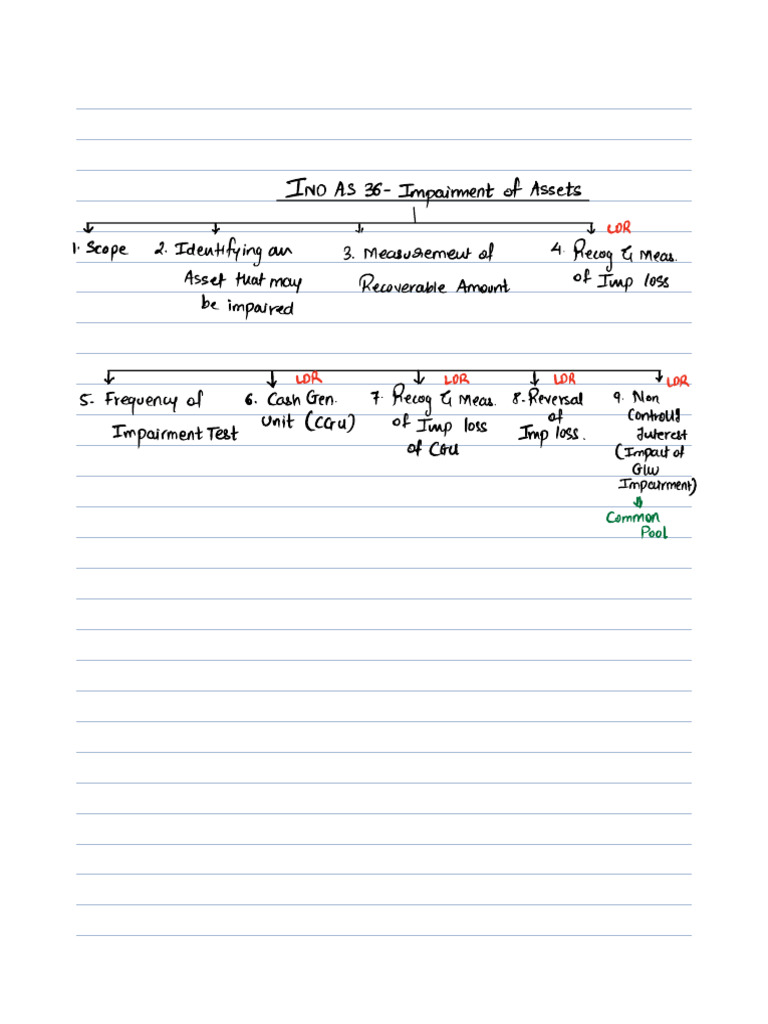 IND AS 36 - Impairment of Assets
LDR
1. Scope
2. Identifying an
Asset that may
be impaired
3. Measurement of
Recoverable Amount
4. Recog & Meas.
of Imp loss
5. Frequency of
Impairment Test
LDR
6. Cash Gen.
Unit (CGU)
LDR
7. Recog & Meas.
of Imp loss
of CGU
LDR
8. Reversal
of
Imp loss.
LDR
9. Non
Controllg
Interest
(Impact of
G/W
Impairment)
Common
Pool